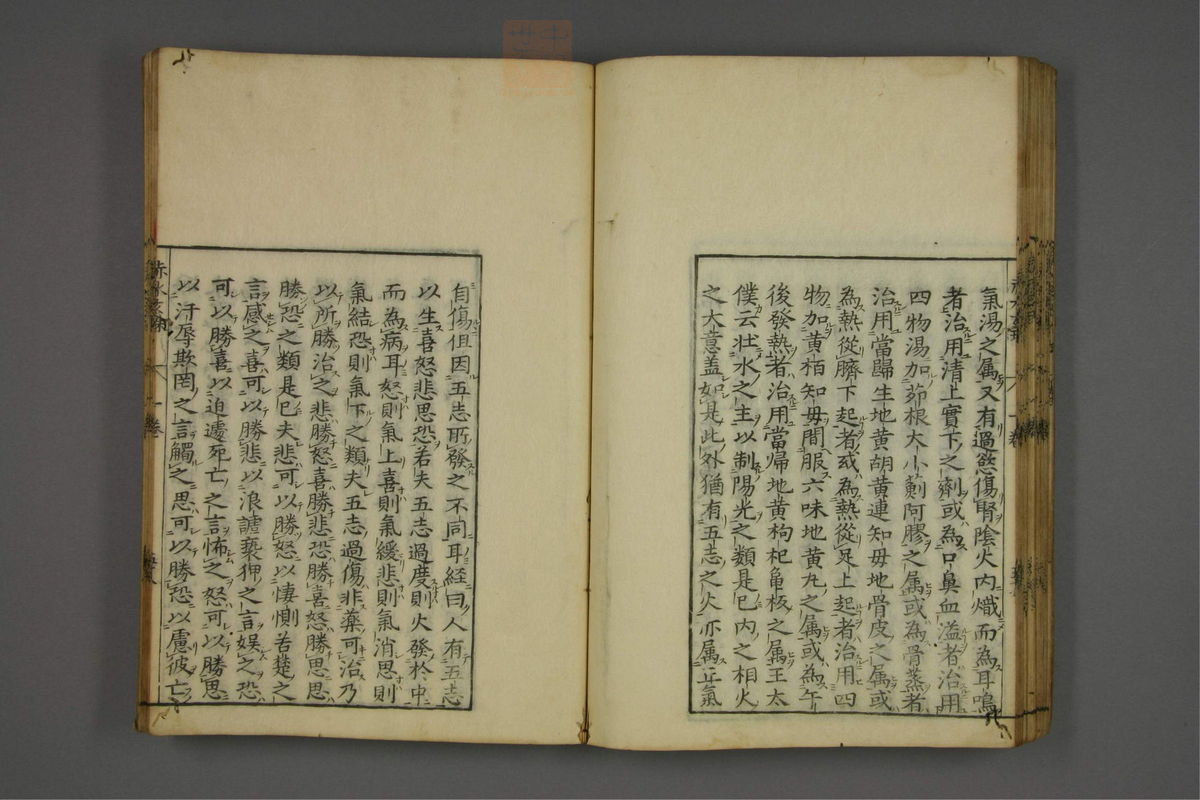 氣湯之属又有過慾傷腎陰火内熾而為耳鳴
者治用清上實下之劑或為口鼻血溢者治用
四物湯加茆根大小薊阿膠之属或為骨蒸者
治用當歸生地黄胡黄連知毋地骨皮之属或
為熱從臍下起者或為熱從足上起者治用四
物加黄栢知毋間服六味地黄丸之属或為午
後發熱者治用當帰地黄枸杞亀板之属王太
僕云壮水之主以制陽光之類是已内之相火
之大意盖如是此外猶有五志之火亦属正氣
自傷但因五志所發之不同耳経曰人有五志
以生喜怒悲思恐若夫五志過度則火發於中
而為病耳怒則氣上喜則氣緩悲則氣消思則
氣結恐則氣下之類夫五志過傷非藥可治乃
以所勝治之悲勝怒喜勝悲恐勝喜怒勝思思
勝恐之類是已夫悲可以勝怒以悽惻苦楚之
言感之喜可以勝悲以浪謔褻狎之言娯之恐
可以勝喜以迫遽死亡之言怖之怒可以勝思
以汙辱欺罔之言觸之思可以勝恐以慮彼亡
赤水玄珠
一卷